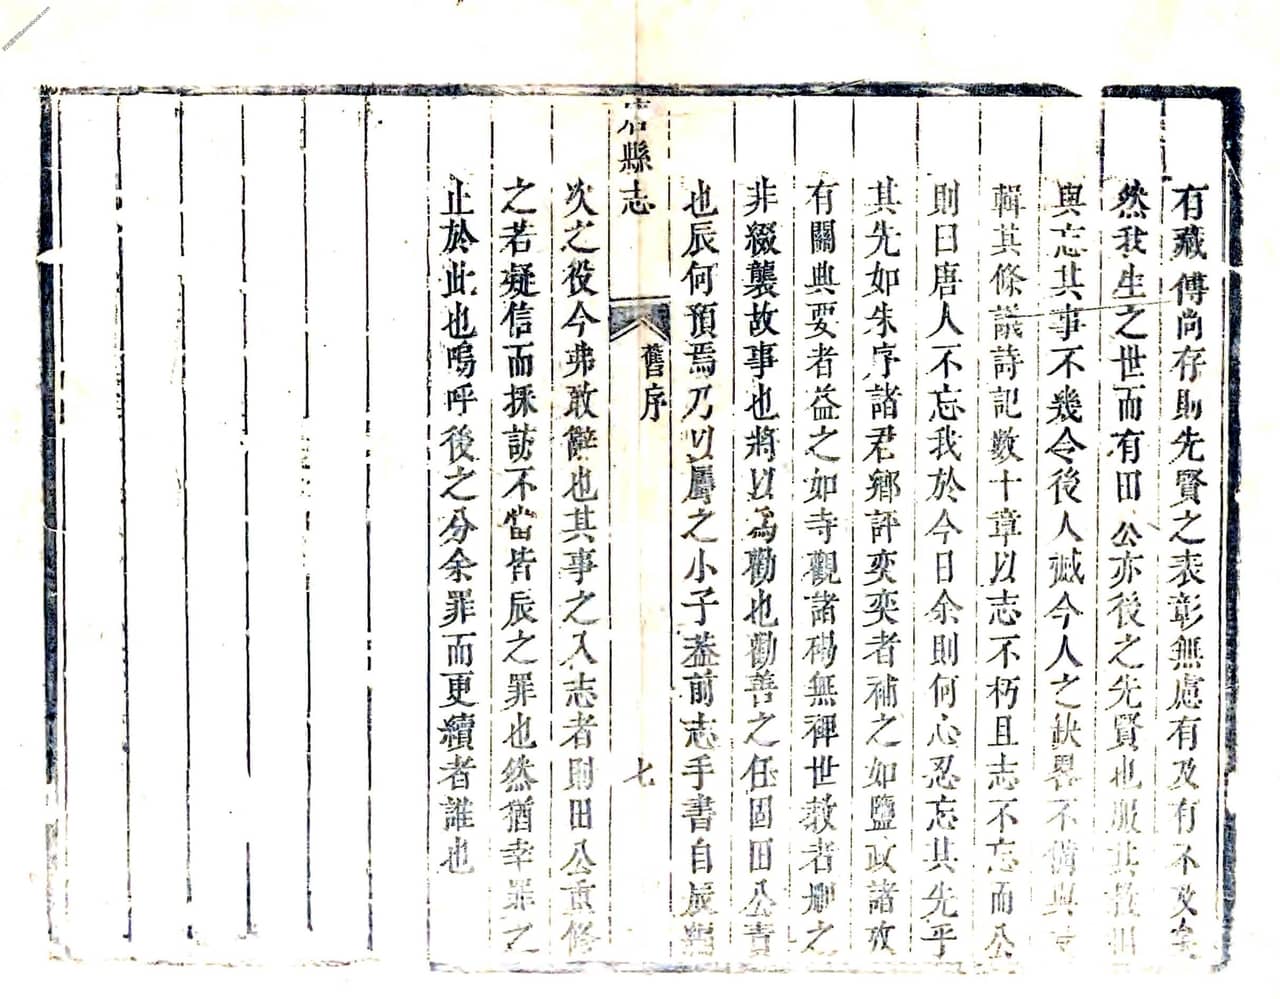 有藏傳尚存則先賢之表彰無慮有及有不及矣
然我生之世而有田公亦後之先賢也服其教
與忘其事不幾令後人憾今人之缺畧不備與
輯其條議詩記數十章以志不朽且志不忘而公
則曰唐人不忘我於今日余則何心忍忘其先乎
其先如朱序諸君鄉評奕奕者補之如鹽政諸攷
有關典要者益之如寺觀諸碣無裨世教者刪之
非綴襲故事也將以為勸也勸善之任固田公責
也辰何預焉乃以屬之小子葢前志手書自辰
縣志
舊序
七
次之役今弗敢辭也其事之入志者則田公重修
之若疑信而採訪不當皆辰之罪也然猶幸罪之
止於此也嗚呼後之分余罪而更續者誰也